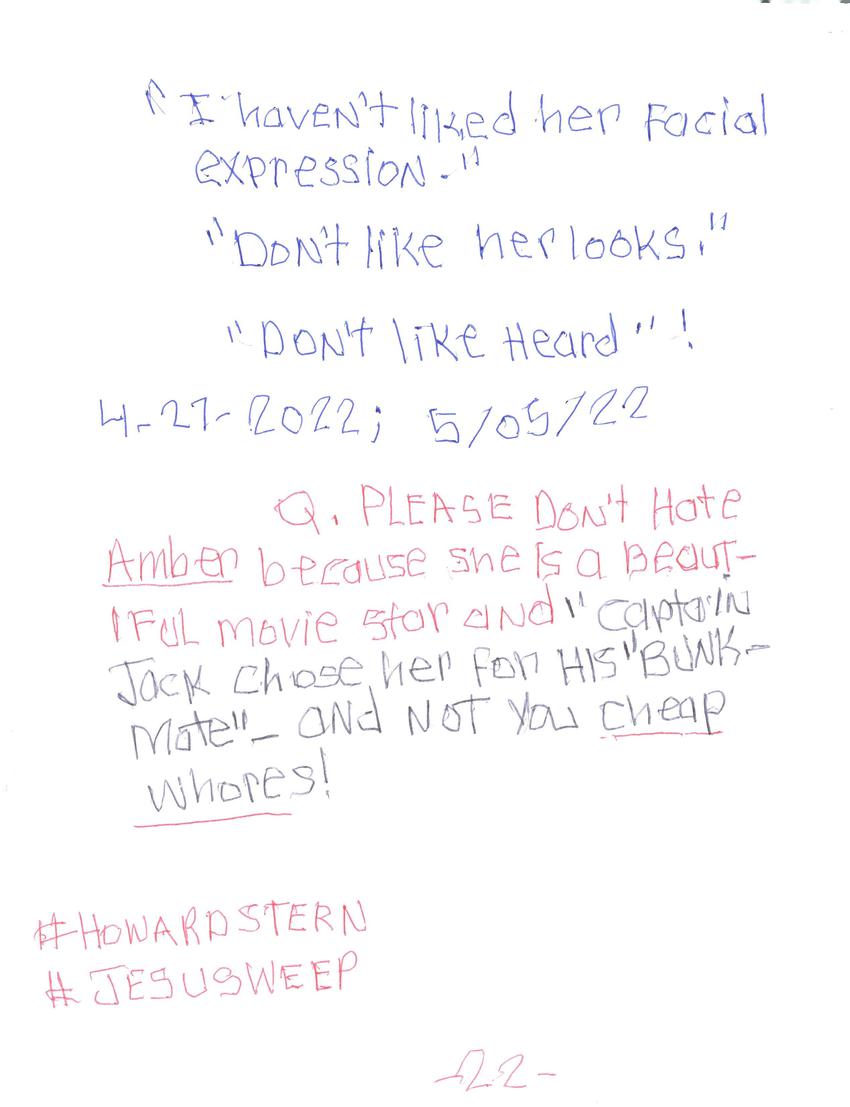 "I haven't liked her Facial
expression."
"Don't like her looks."
"DON't like Heard"!
4-27-2022; 5/05/22
Q. PLEASE Don't Hate
Amber because she is a Beaut-
iFul movie star and "Captain
Jack chose her For HIS "BUNK-
Mate"- AND NOT You cheap
whores!
#HOWARDSTERN
#JESUSWEEP
-22-